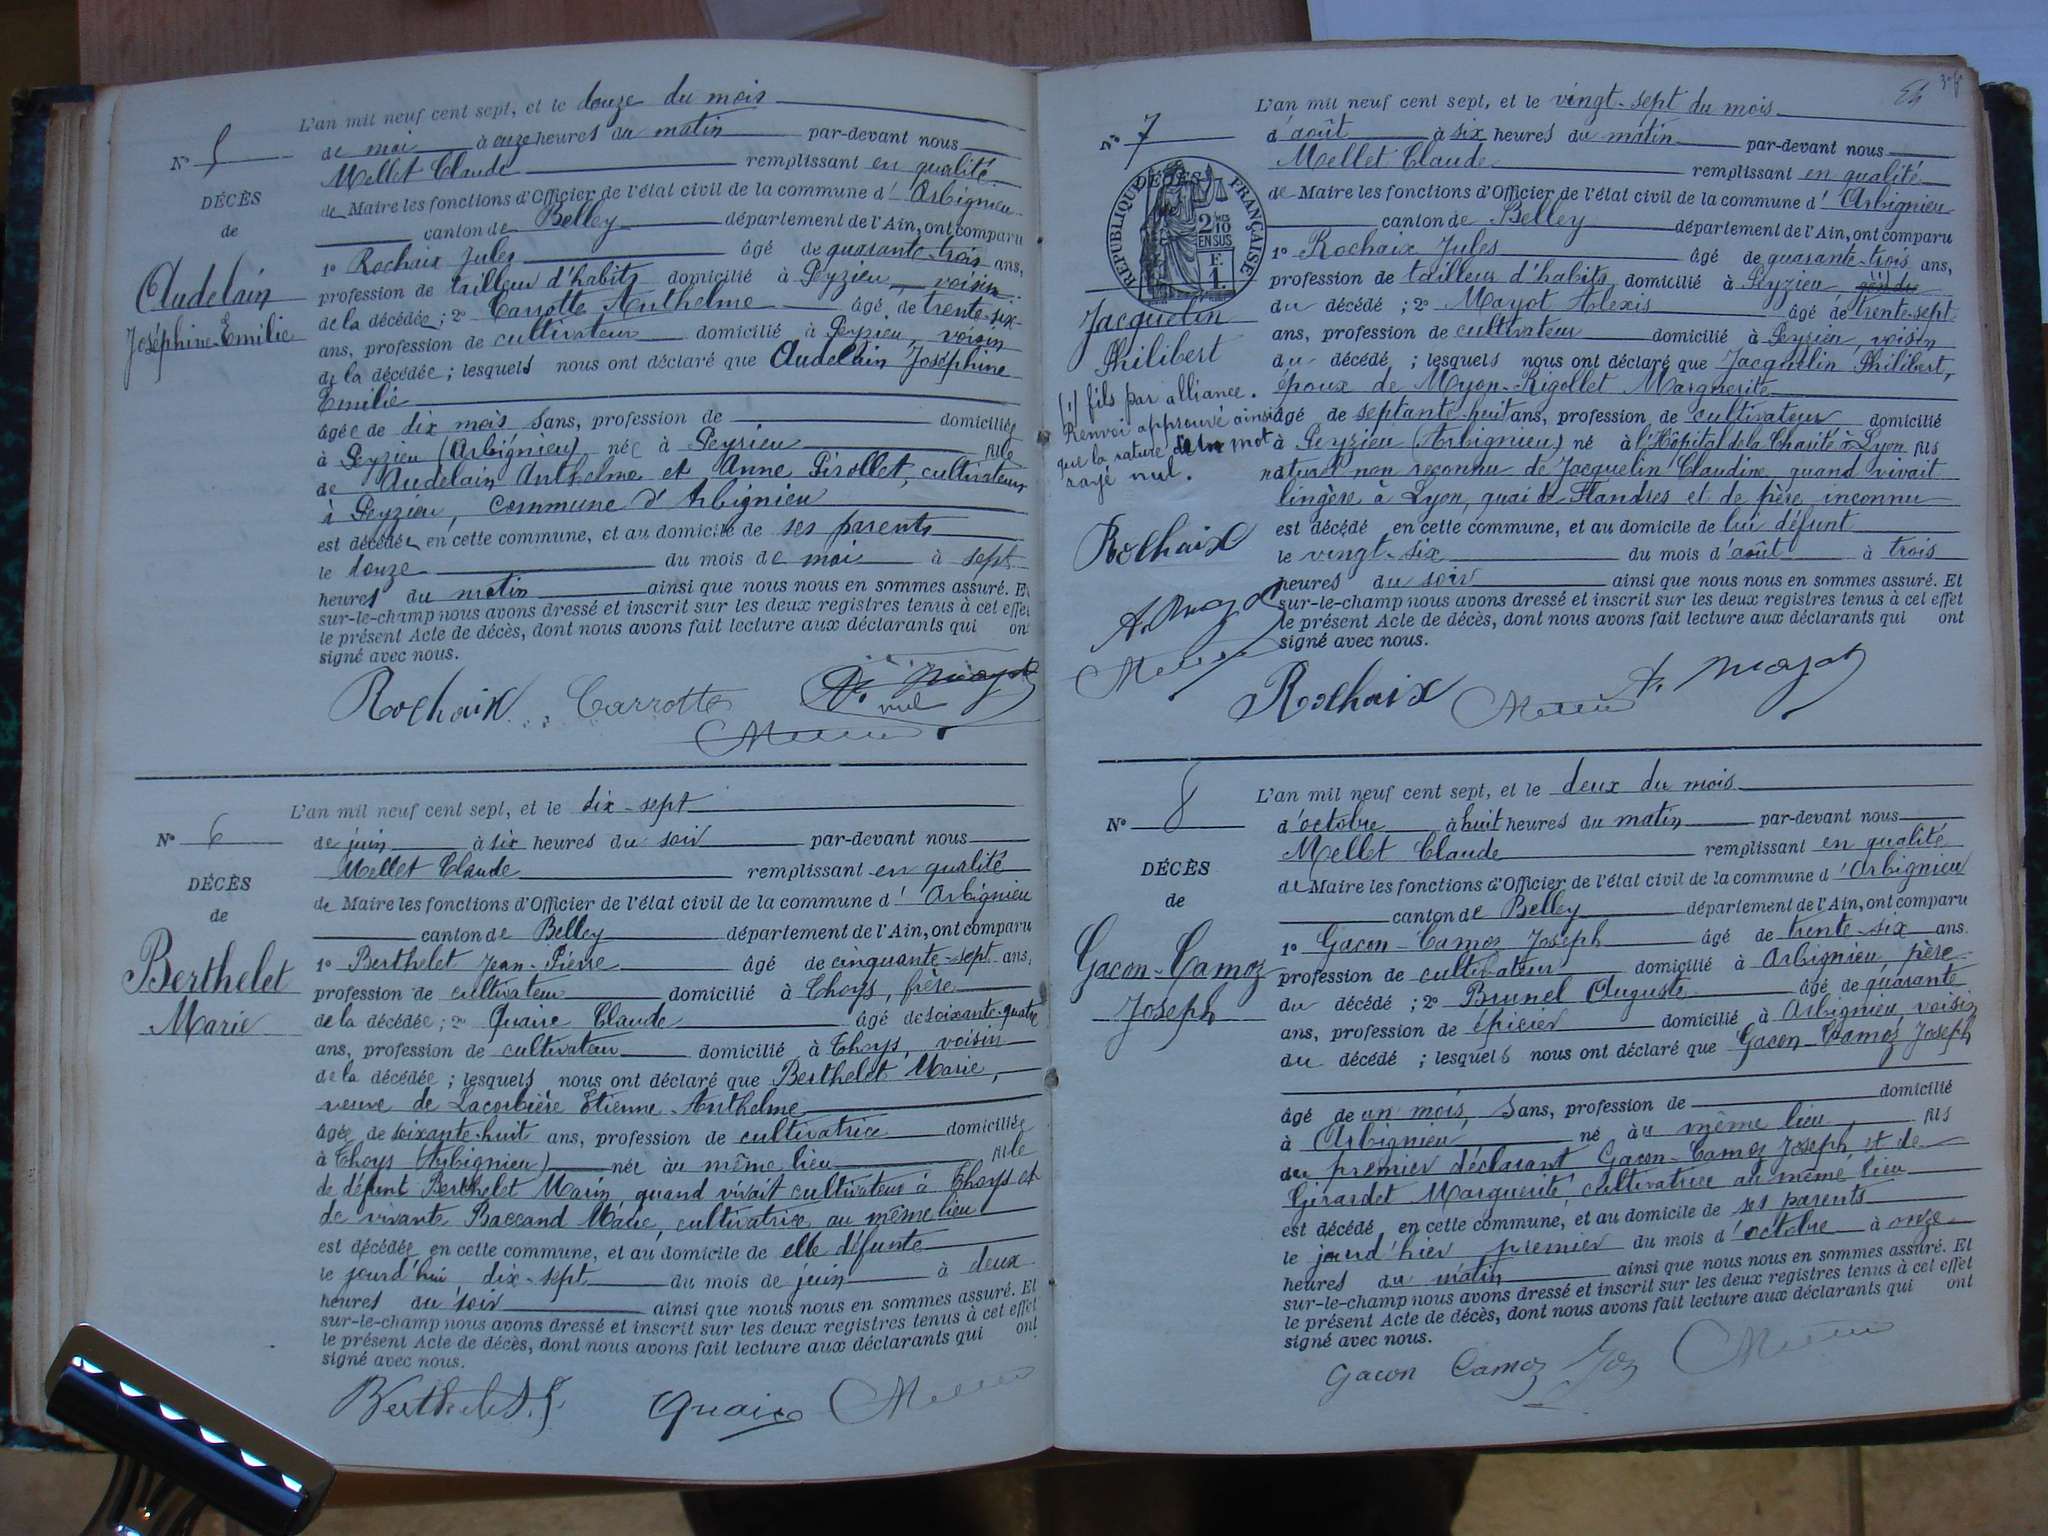 L'an mil neuf cent sept, et le douze du mois
de mai à onze heures du matin par-devant nous
Mellet Claude remplissant en qualité
de Maire les fonctions d'Officier de l'état civil de la commune d'Arbignieu
canton de Belley département de l'Ain, ont comparu
1° Rochaix Jules âgé de quarante-trois ans,
profession de tailleur d'habits domicilié à Peyzieu, voisin
de la décédée; 2° Carrotte Anthelme âgé de trente-six
ans, profession de cultivateur domicilié à Peyzieu, voisin
de la décédée; lesquels nous ont déclaré que Audelain Joséphine
Emilie
âgée de dix mois sans, profession de domiciliée
à Peyzieu (Arbignieu) née à Peyzieu fille
de Audelain Anthelme et Anne Pirollet, cultivateurs
à Peyzieu, commune d'Arbignieu
est décédée en cette commune, et au domicile de ses parents
le douze du mois de mai à sept
heures du matin ainsi que nous nous en sommes assuré. Et
sur-le-champ nous avons dressé et inscrit sur les deux registres tenus à cet effet
le présent Acte de décès, dont nous avons fait lecture aux déclarants qui ont
signé avec nous.
N° 5
DÉCÈS
de
Audelain
Joséphine-Emilie
Rochaix Carrotte A. Mayot
nul
L'an mil neuf cent sept, et le dix-sept
de juin à six heures du soir par-devant nous
Mellet Claude remplissant en qualité
de Maire les fonctions d'Officier de l'état civil de la commune d'Arbignieu
canton de Belley département de l'Ain, ont comparu
1° Berthelet Jean-Pierre âgé de cinquante-sept ans,
profession de cultivateur domicilié à Thoys, frère
de la décédée; 2° Quaire Claude âgé de soixante-quatre
ans, profession de cultivateur domicilié à Thoys, voisin
de la décédée; lesquels nous ont déclaré que Berthelet Marie,
veuve de Lacorbière Etienne-Anthelme
âgée de soixante-huit ans, profession de cultivatrice domiciliée
à Thoys (Arbignieu) née au même lieu fille
de défunt Berthelet Marin, quand vivait cultivateur à Thoys et
de vivante Baccand Marie, cultivatrice au même lieu
est décédée en cette commune, et au domicile de elle défunte
le jourd'hui dix-sept du mois de juin à deux
heures du soir ainsi que nous nous en sommes assuré. Et
sur-le-champ nous avons dressé et inscrit sur les deux registres tenus à cet effet
le présent Acte de décès, dont nous avons fait lecture aux déclarants qui ont
signé avec nous.
N° 6
DÉCÈS
de
Berthelet
Marie
Quaire
L'an mil neuf cent sept, et le vingt-sept du mois
d'août à six heures du matin par-devant nous
Mellet Claude remplissant en qualité
de Maire les fonctions d'Officier de l'état civil de la commune d'Arbignieu
canton de Belley département de l'Ain, ont comparu
1° Rochaix Jules âgé de quarante-trois ans,
profession de tailleur d'habits domicilié à Peyzieu
du décédé; 2° Mayot Alexis âgé de trente-sept
ans, profession de cultivateur domicilié à Peyzieu, voisin
du décédé; lesquels nous ont déclaré que Jacquelin Philibert,
époux de Myon-Rigollet Marguerite
âgé de septante-huit ans, profession de cultivateur domicilié
à Peyzieu (Arbignieu) né à l'Hôpital de la Charité à Lyon fils
naturel non reconnu de Jacquelin Claudine, quand vivait
lingère à Lyon, quai de Flandres et de père inconnu
est décédé en cette commune, et au domicile de lui défunt
le vingt-six du mois d'août à trois
heures du soir ainsi que nous nous en sommes assuré. Et
sur-le-champ nous avons dressé et inscrit sur les deux registres tenus à cet effet
le présent Acte de décès, dont nous avons fait lecture aux déclarants qui ont
signé avec nous.
N° 7
DÉCÈS
RÉPUBLIQUE FRANÇAISE
2/10
EN SUS
F.
1.
Jacquelin
Philibert
(1) fils par alliance.
Renvoi approuvé ainsi
que la rature de un mot
rayé nul.
Rochaix
A. Mayot
Rochaix A. Mayot
L'an mil neuf cent sept, et le deux du mois
d'octobre à huit heures du matin par-devant nous
Mellet Claude remplissant en qualité
de Maire les fonctions d'Officier de l'état civil de la commune d'Arbignieu
canton de Belley département de l'Ain, ont comparu
1° Gacon-Camoz Joseph âgé de trente-six ans
profession de cultivateur domicilié à Arbignieu père
du décédé; 2° Brunel Auguste âgé de quarante
ans, profession de épicier domicilié à Arbignieu, voisin
du décédé; lesquels nous ont déclaré que Gacon-Camoz Joseph
âgé de un mois, sans, profession de domicilié
à Arbignieu, né au même lieu, fils
du premier déclarant Gacon-Camoz Joseph et de
Girardet Marguerite cultivatrice au même lieu
est décédé en cette commune, et au domicile de ses parents
le jourd'hier premier du mois d'octobre à onze
heures du matin ainsi que nous nous en sommes assuré. Et
sur-le-champ nous avons dressé et inscrit sur les deux registres tenus à cet effet
le présent Acte de décès, dont nous avons fait lecture aux déclarants qui ont
signé avec nous.
N° 8
DÉCÈS
de
Gacon-Camoz
Joseph
Gacon Camoz Joz